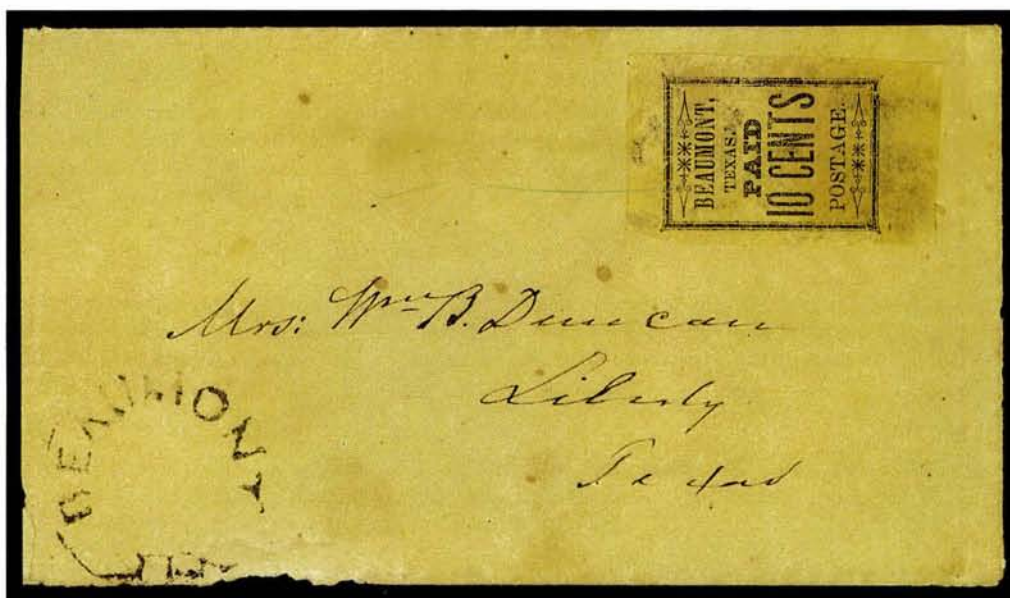 BEAUMONT,
TEXAS.
PAID
10 CENTS
POSTAGE.
Mrs: Wm B. Duncan
Liberty
Texas
BEAUMONT